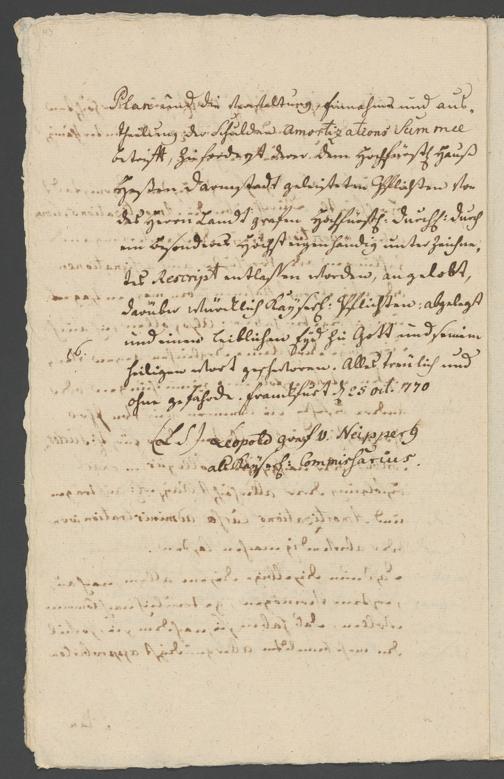 die Verwaltung, Einnahme und aus-
theilung der Schulden Amortizations Summe
betrifft, zu forderst derer dem Hochfürstl. Hauß
Heßen-Darmstadt geleisteten Pflichten von
des Herrn Landgrafen Hochfürstl: Durchl: durch
ein besonders Höchst eigenhändig unterzeichne-
tes Rescript entlassen worden, angelobt,
darüber würcklich Kayserl: Pflichten abgelegt
und einen leiblichen Eyd zu Gott und seinem
heiligen wort geschworen. Alles treulich und
ohne gefährde. Franckfurt d 25 oct. 770
(L.S.) Leopold graf v. Neipperg
als Kayserl: Commissarius.